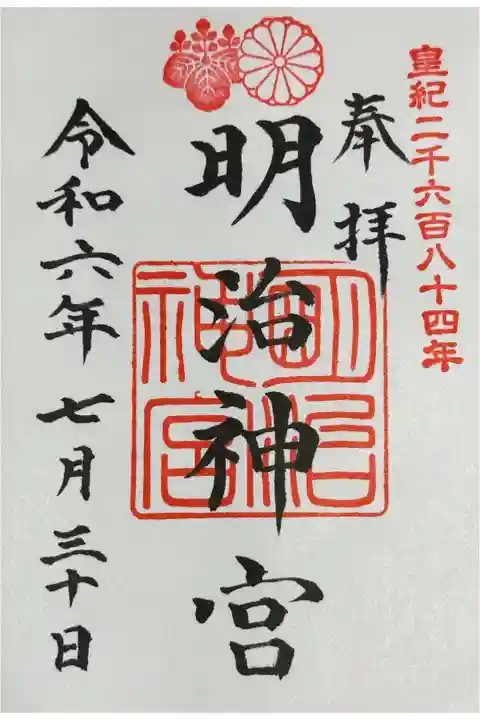 皇紀二千六百八十四年
奉拝
明治神宮
明治神宮
令和六年七月三十日